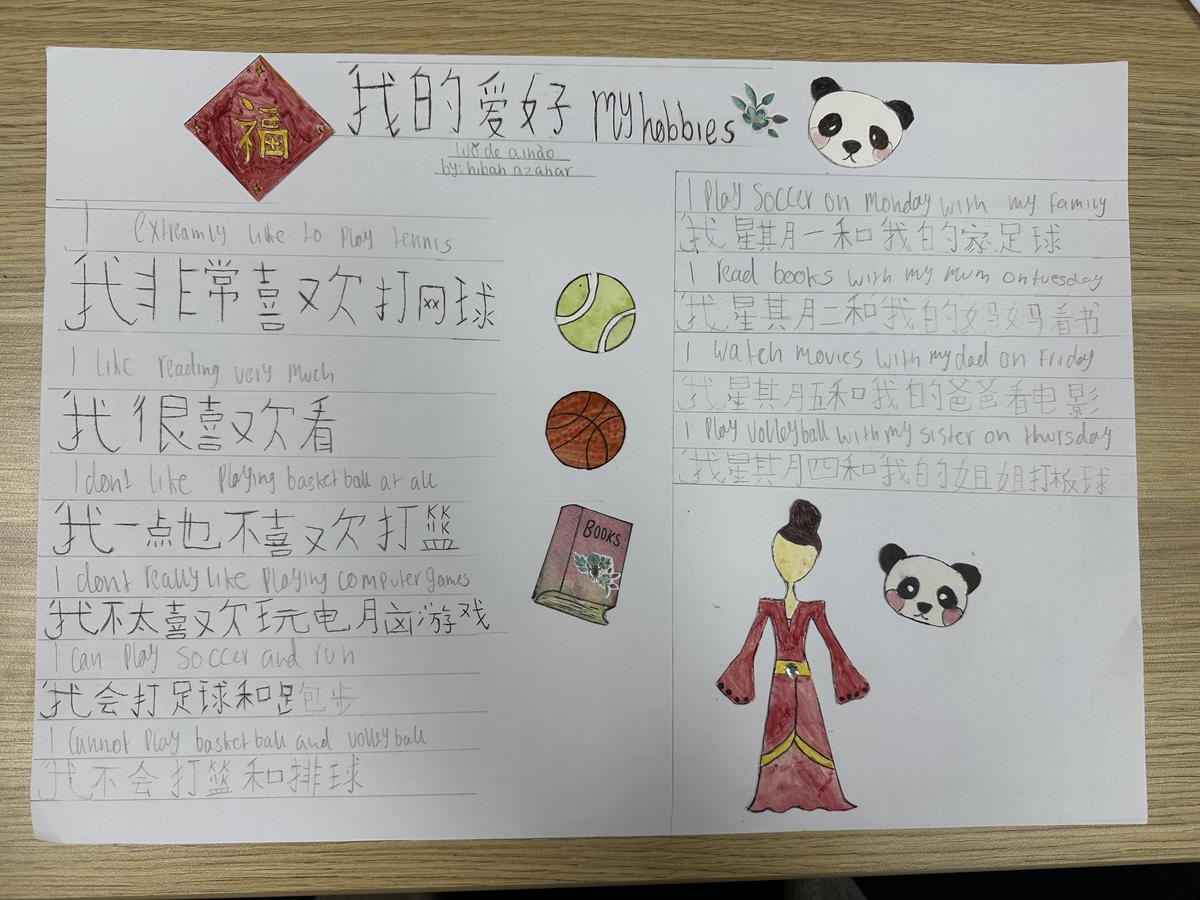 福
我的爱好 my hobbies
wǒ de aihào
by: hibah azahar
I extreamly like to play tennis
我非常喜欢打网球
I like reading very much
我很喜欢看
I dont like playing basketball at all
我一点也不喜欢打篮
I dont really like playing computer games
我不太喜欢玩电脑游戏
I can play soccer and run
我会打足球和跑步
I cannot play basketball and volleyball
我不会打篮和排球
BOOKS
I play soccer on monday with my family
我星期一和我的家足球
I read books with my mum on tuesday
我星期二和我的妈妈看书
I watch movies with my dad on friday
我星期五和我的爸爸看电影
I play volleyball with my sister on thursday
我星期四和我的姐姐打板球